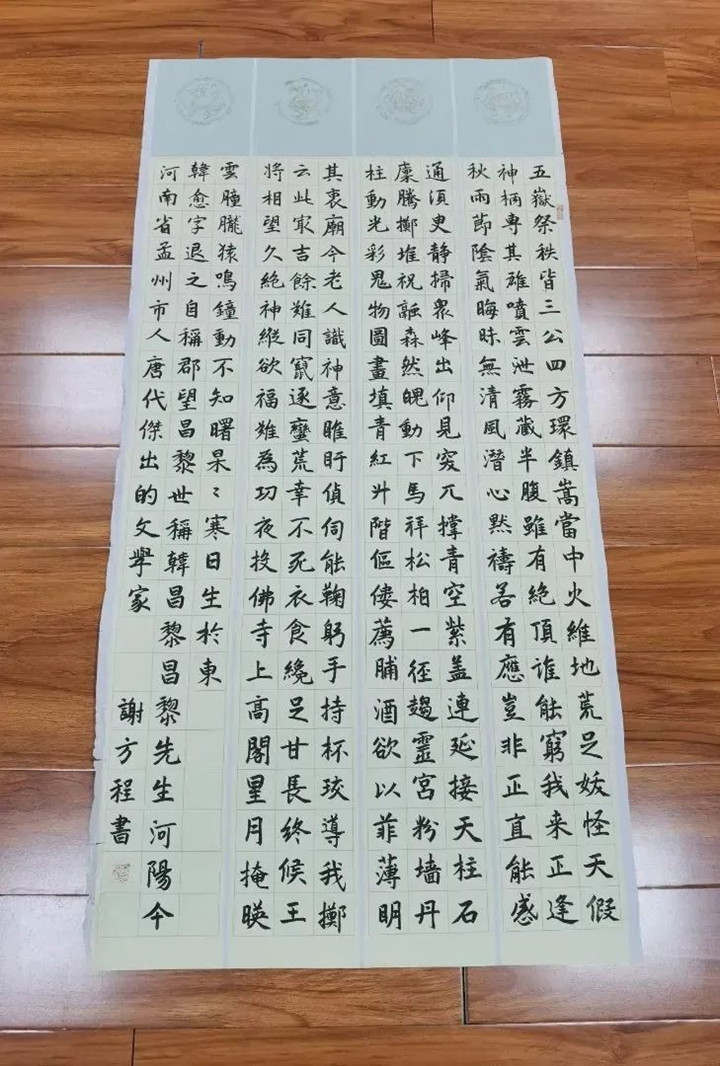 五嶽祭秩皆三公四方環鎮嵩當中火維地荒足妖怪天假
神柄專其雄噴雲泄霧藏半腹雖有絶頂誰能窮我来正逢
秋雨節陰氣晦昧無清風潛心黙禱若有應豈非正直能感
通須臾静掃衆峰出仰見突兀撐青空紫盖連延接天柱石
廩騰擲堆祝融森然魄動下馬拜松柏一徑趨靈宮粉墙丹
柱動光彩鬼物圖畫填青紅升階傴僂薦脯酒欲以菲薄明
其衷廟今老人識神意睢盱偵伺能鞠躬手持杯珓導我擲
云此最吉餘難同竄逐蠻荒幸不死衣食纔足甘長終候王
將相望久絶神縱欲福難為功夜投佛寺上高閣星月掩暎
雲朣朧猿鳴鐘動不知曙杲〻寒日生於東
韓愈字退之自稱郡望昌黎世稱韓昌黎昌黎先生河陽今
河南省孟州市人唐代傑出的文學家
謝方程書